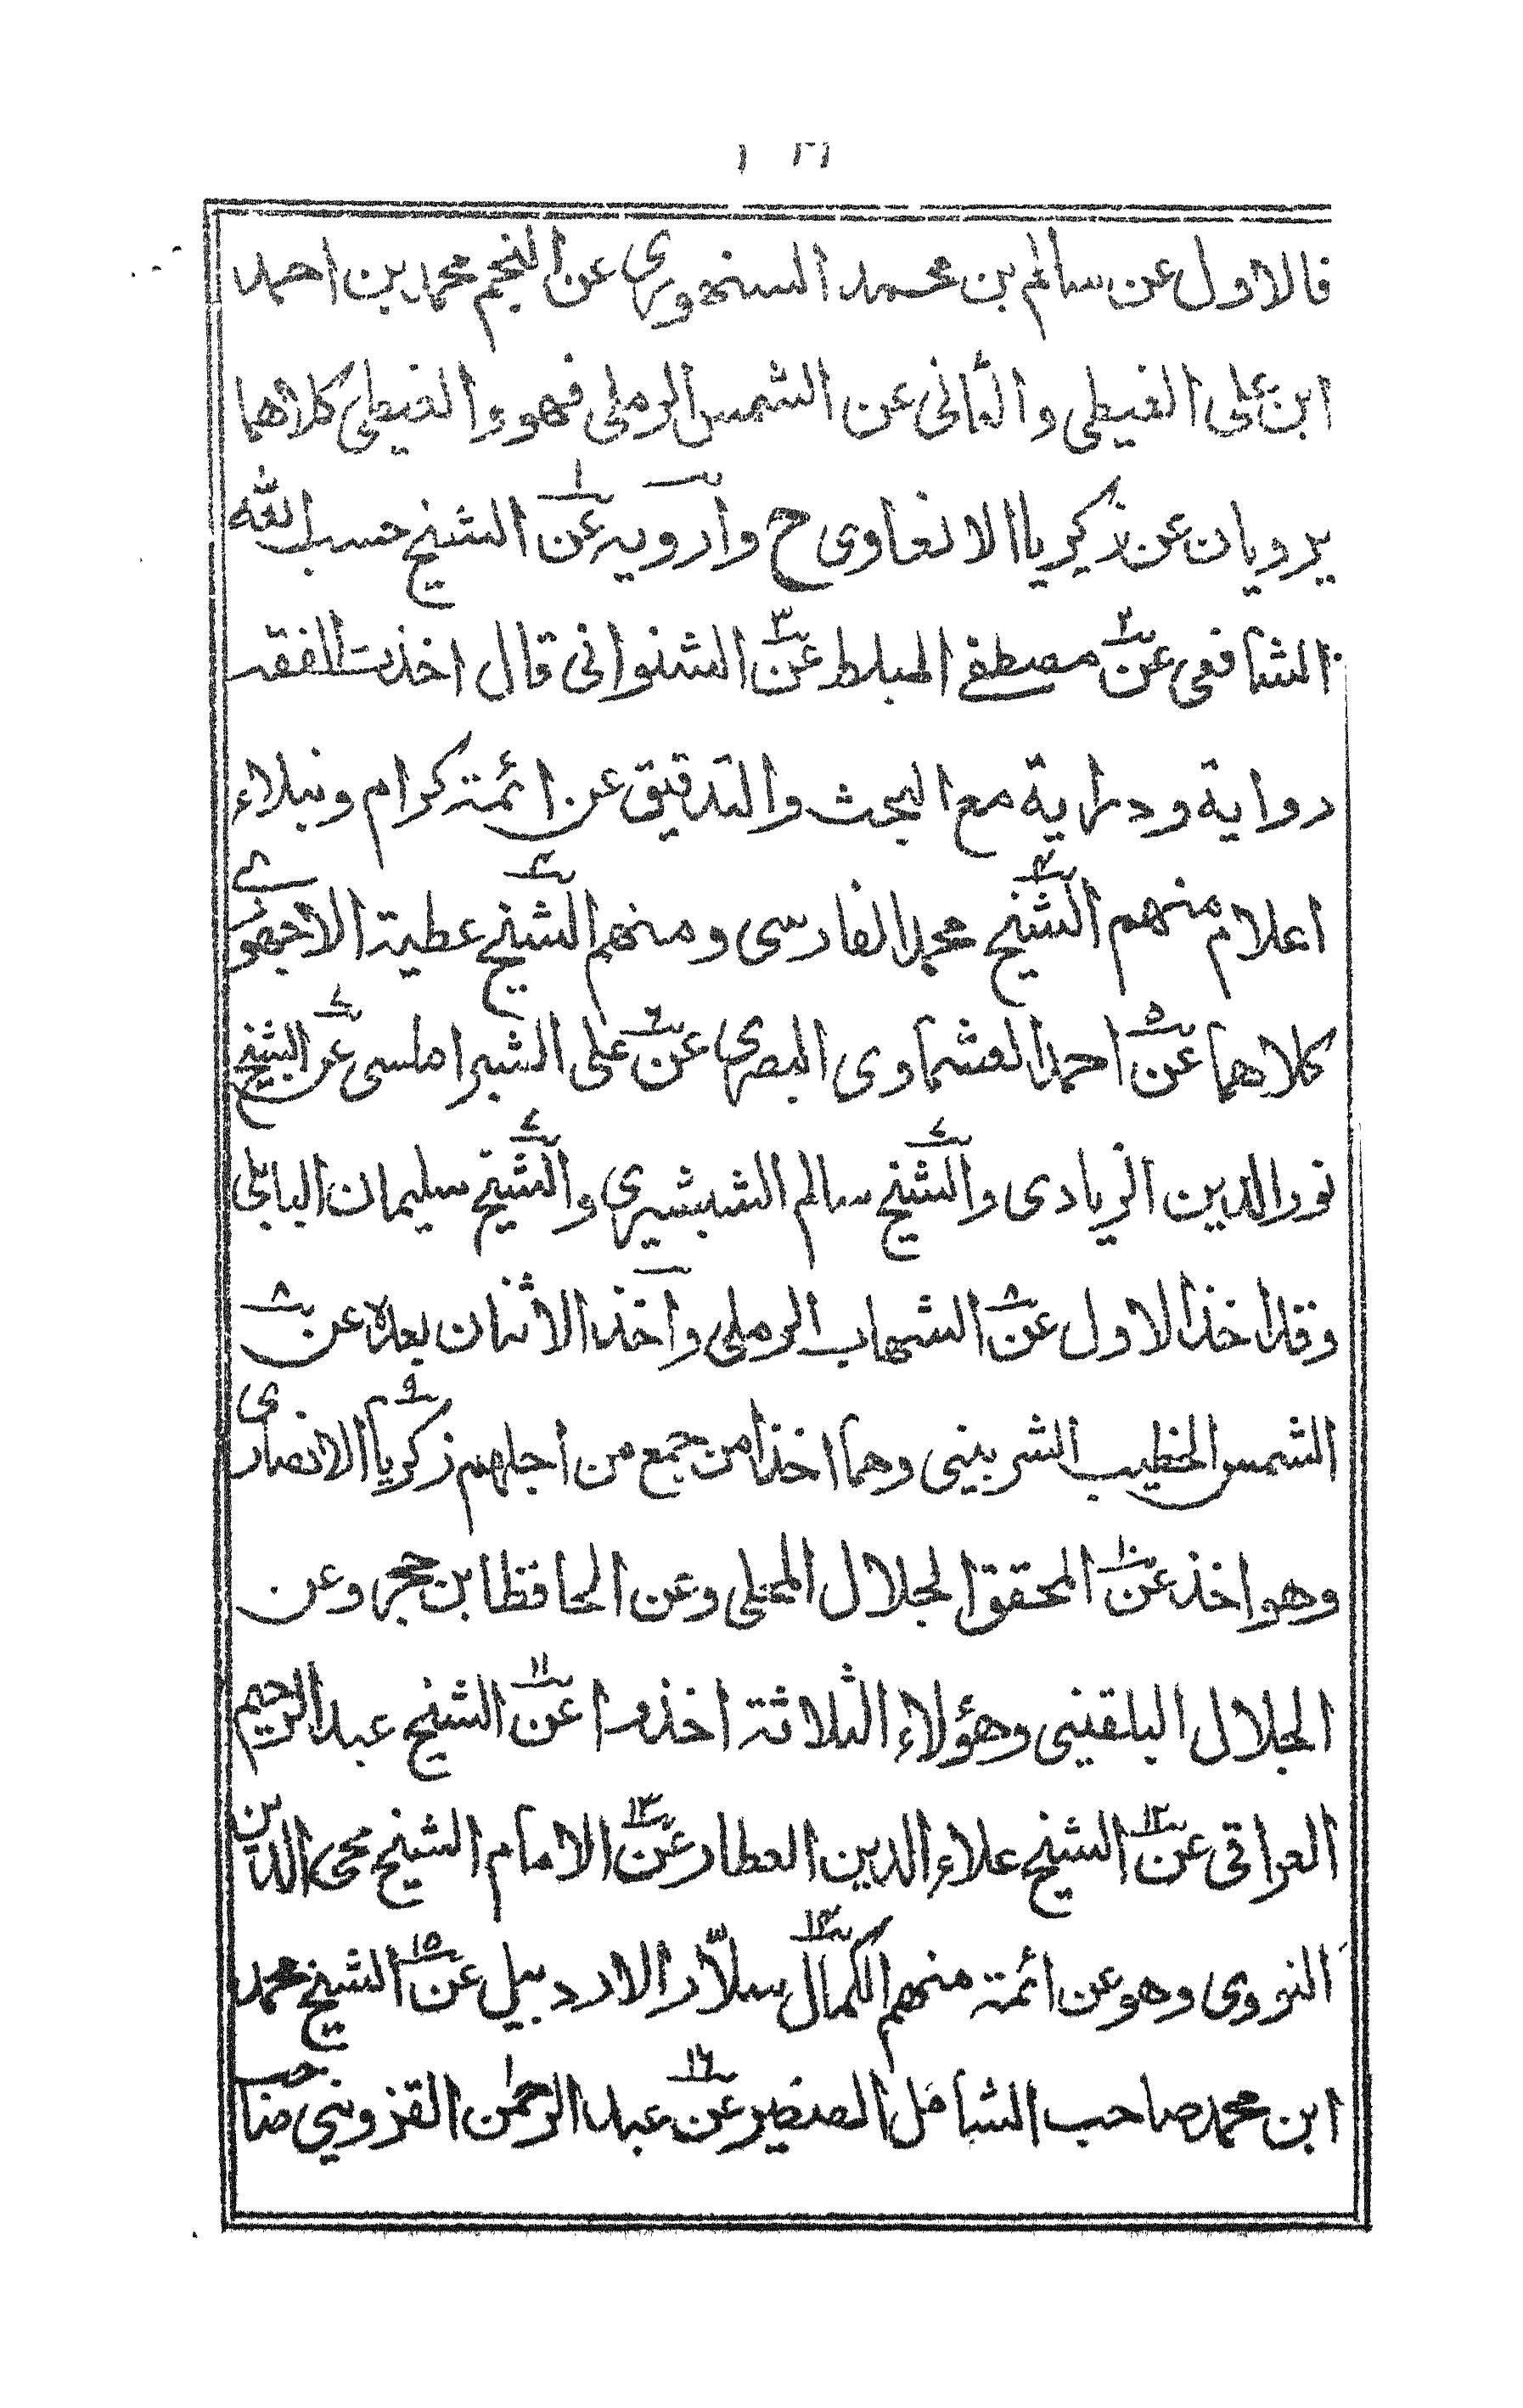 فالاول عن سالم بن محمد السنهورى عن النجم محمد بن احمد
ابن على الغيطى والثانى عن الشمس الرملى فهو والغيطى كلاهما
يرويان عن زكريا الانصاوى ح وارويه عن الشيخ حسب الله
الشافعى عن مصطفى المبلط عن الشنوانى قال اخذت الفقه
رواية ودراية مع البحث والتدقيق عن ائمة كرام ونبلاء
اعلام منهم الشيخ محمد الفارسى ومنهم الشيخ عطية الاجهورى
كلاهما عن احمد العشماوى البصرى عن على الشبراملسى عن الشيخ
نور الدين الزيادى والشيخ سالم الشبشيرى والشيخ سليمان البابلى
وقد اخذ الاول عن الشهاب الرملى واخذ الاثنان بعده عن
الشمس الخطيب الشربينى وهما اخذا من جمع من اجلهم زكريا الانصارى
وهو اخذ عن المحقق الجلال المحلى وعن الحافظ ابن حجر وعن
الجلال البلقينى وهؤلاء الثلاثة اخذوا عن الشيخ عبد الرحيم
العراقى عن الشيخ علاء الدين العطار عن الامام الشيخ محى الدين
النووى وهو عن ائمة منهم الكمال سلّار الاردبيل عن الشيخ محمد
ابن محمد صاحب الشامل الصغير عن عبد الرحمن القزوينى صاحب